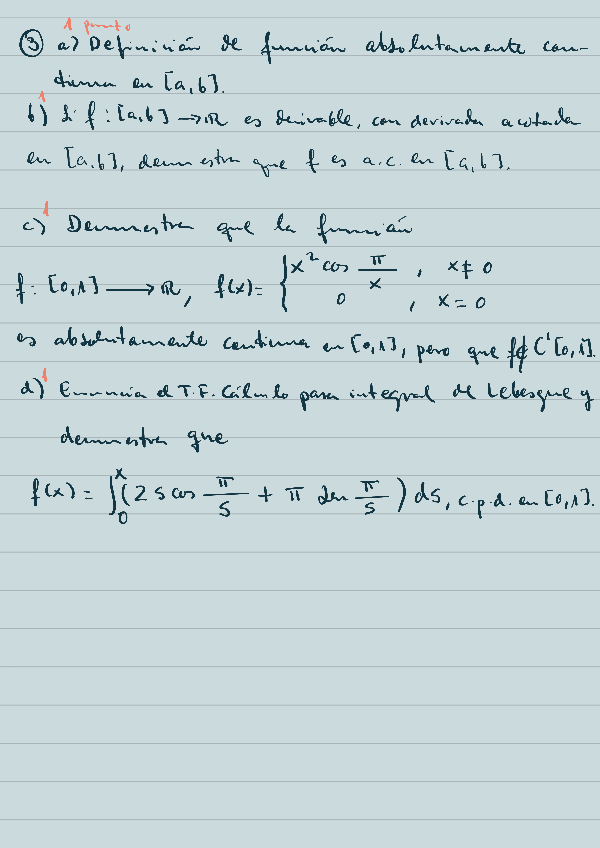 1 punto
③ a) Definición de función absolutamente con-
tinua en [a,b].
1
b) Si f: [a,b] → ℝ es derivable, con derivada acotada
en [a,b], demuestra que f es a.c. en [a,b].
1
c) Demuestra que la función
f: [0,1] → ℝ, f(x) = { x² cos π/x , x ≠ 0
0 , x = 0
es absolutamente continua en [0,1], pero que f ∉ C¹[0,1].
1
d) Enuncia el T.F. Cálculo para integral de Lebesgue y
demuestra que
f(x) = ∫₀ˣ (2 s cos π/s + π sen π/s) ds, c.p.d. en [0,1].